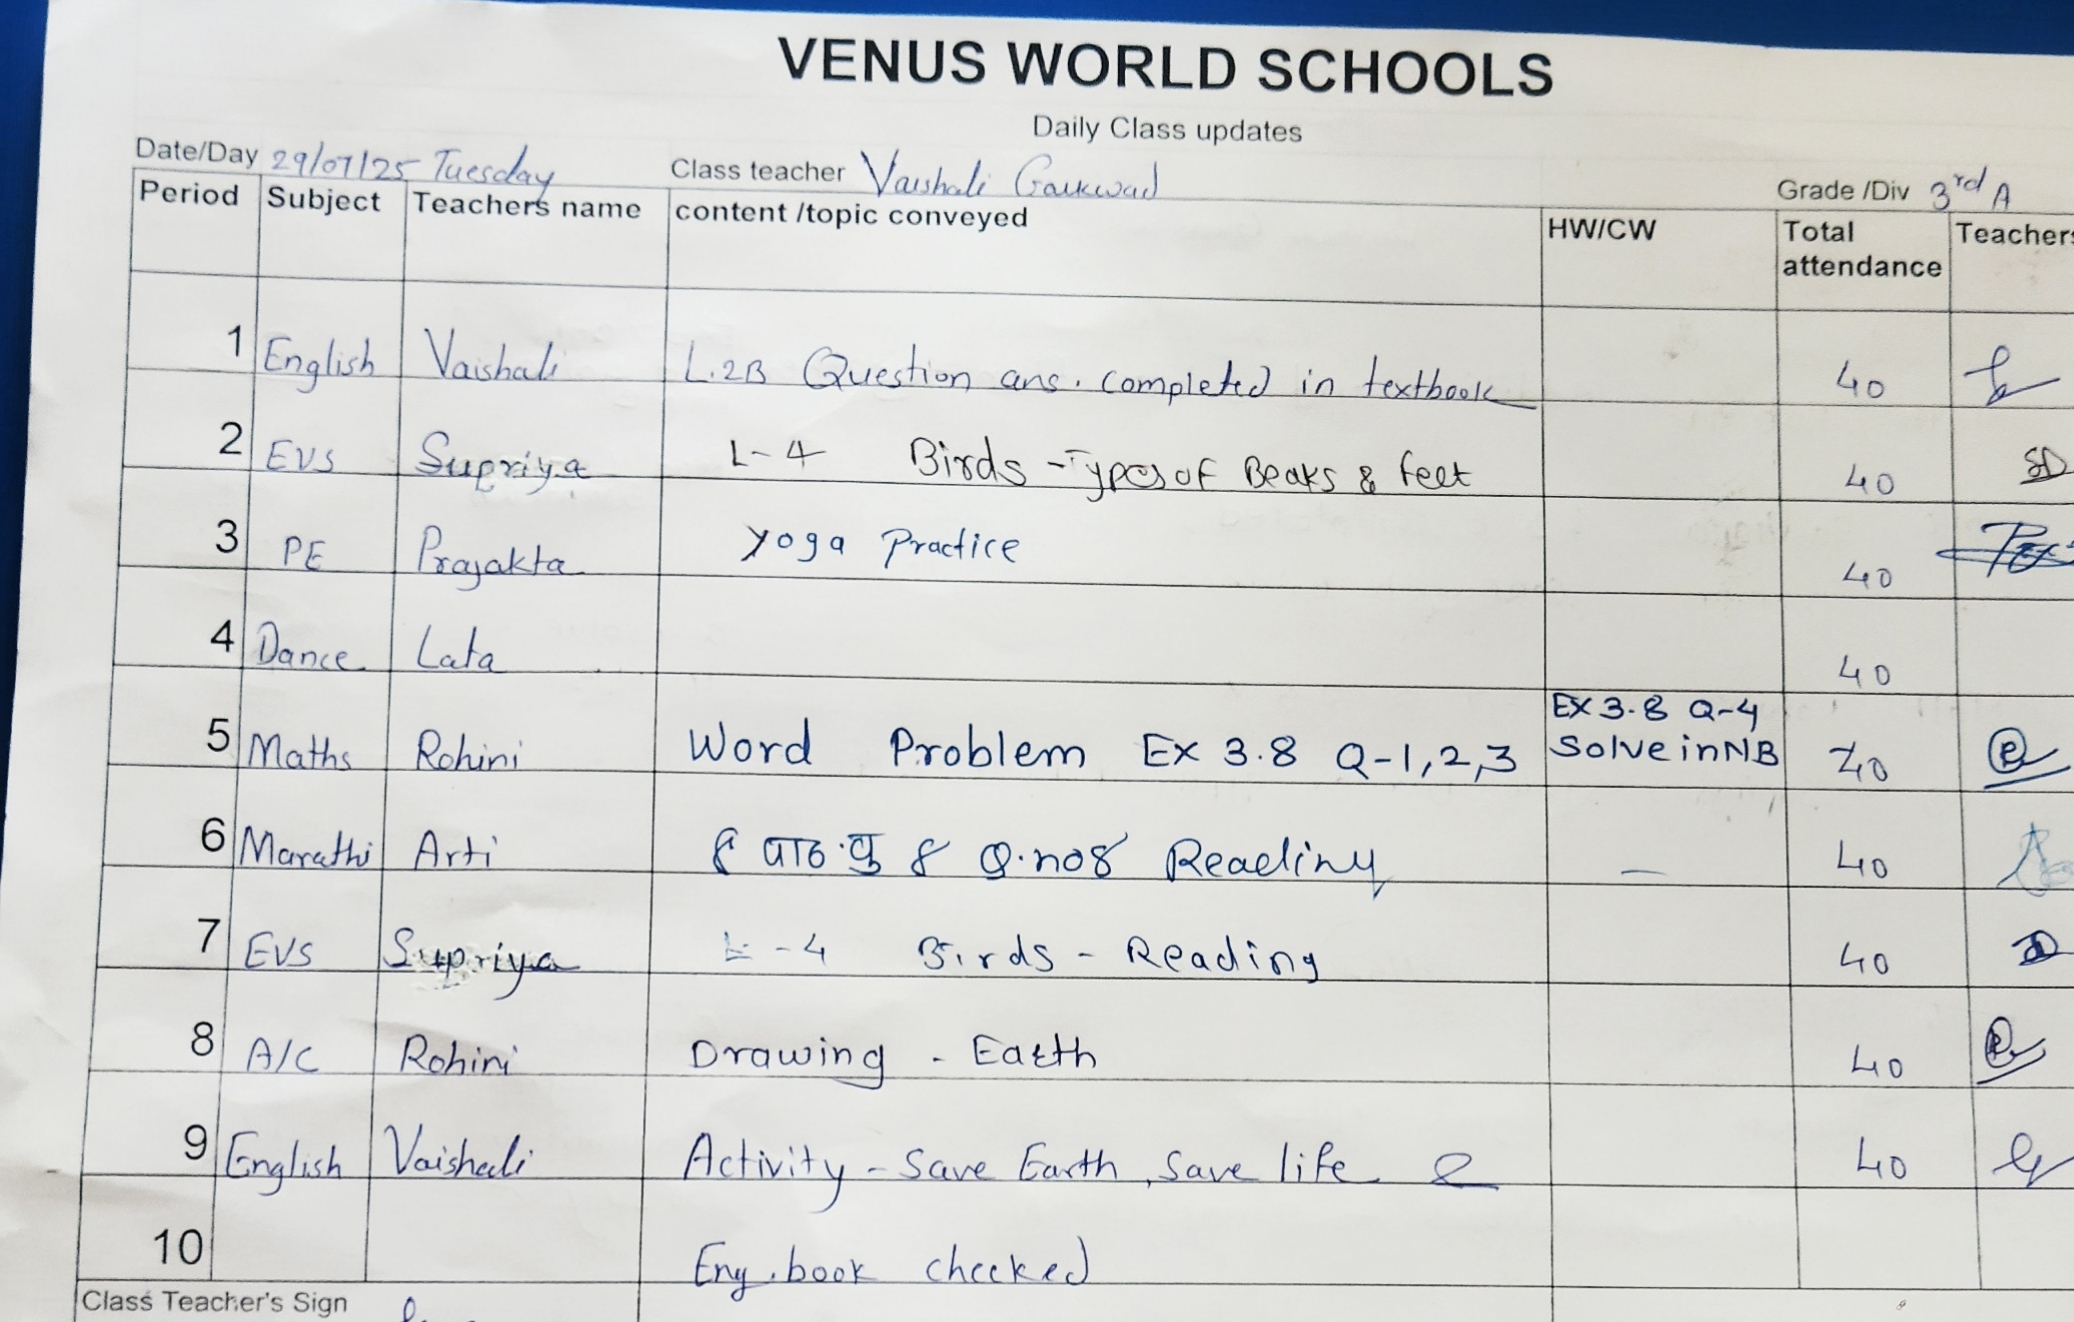 VENUS WORLD SCHOOLS
Daily Class updates
Date/Day 29/07/25 Tuesday Class teacher Vaishali Gaikwad Grade /Div 3rd A
Period Subject Teachers name content /topic conveyed HW/CW Total attendance Teacher
1 English Vaishali L.2B Question ans. completed in textbook 40
2 EVS Supriya L-4 Birds - Types of Beaks & feet 40 SD
3 PE Prajakta Yoga Practice 40
4 Dance Lata 40
5 Maths Rohini Word Problem Ex 3.8 Q-1,2,3 EX 3.8 Q-4 Solve in NB 40
6 Marathi Arti पाठ.पु Q.no8 Reading — 40
7 EVS Supriya L-4 Birds - Reading 40
8 A/C Rohini Drawing - Earth 40
9 English Vaishali Activity - Save Earth, Save life & 40
10 Eng.book checked
Class Teacher's Sign